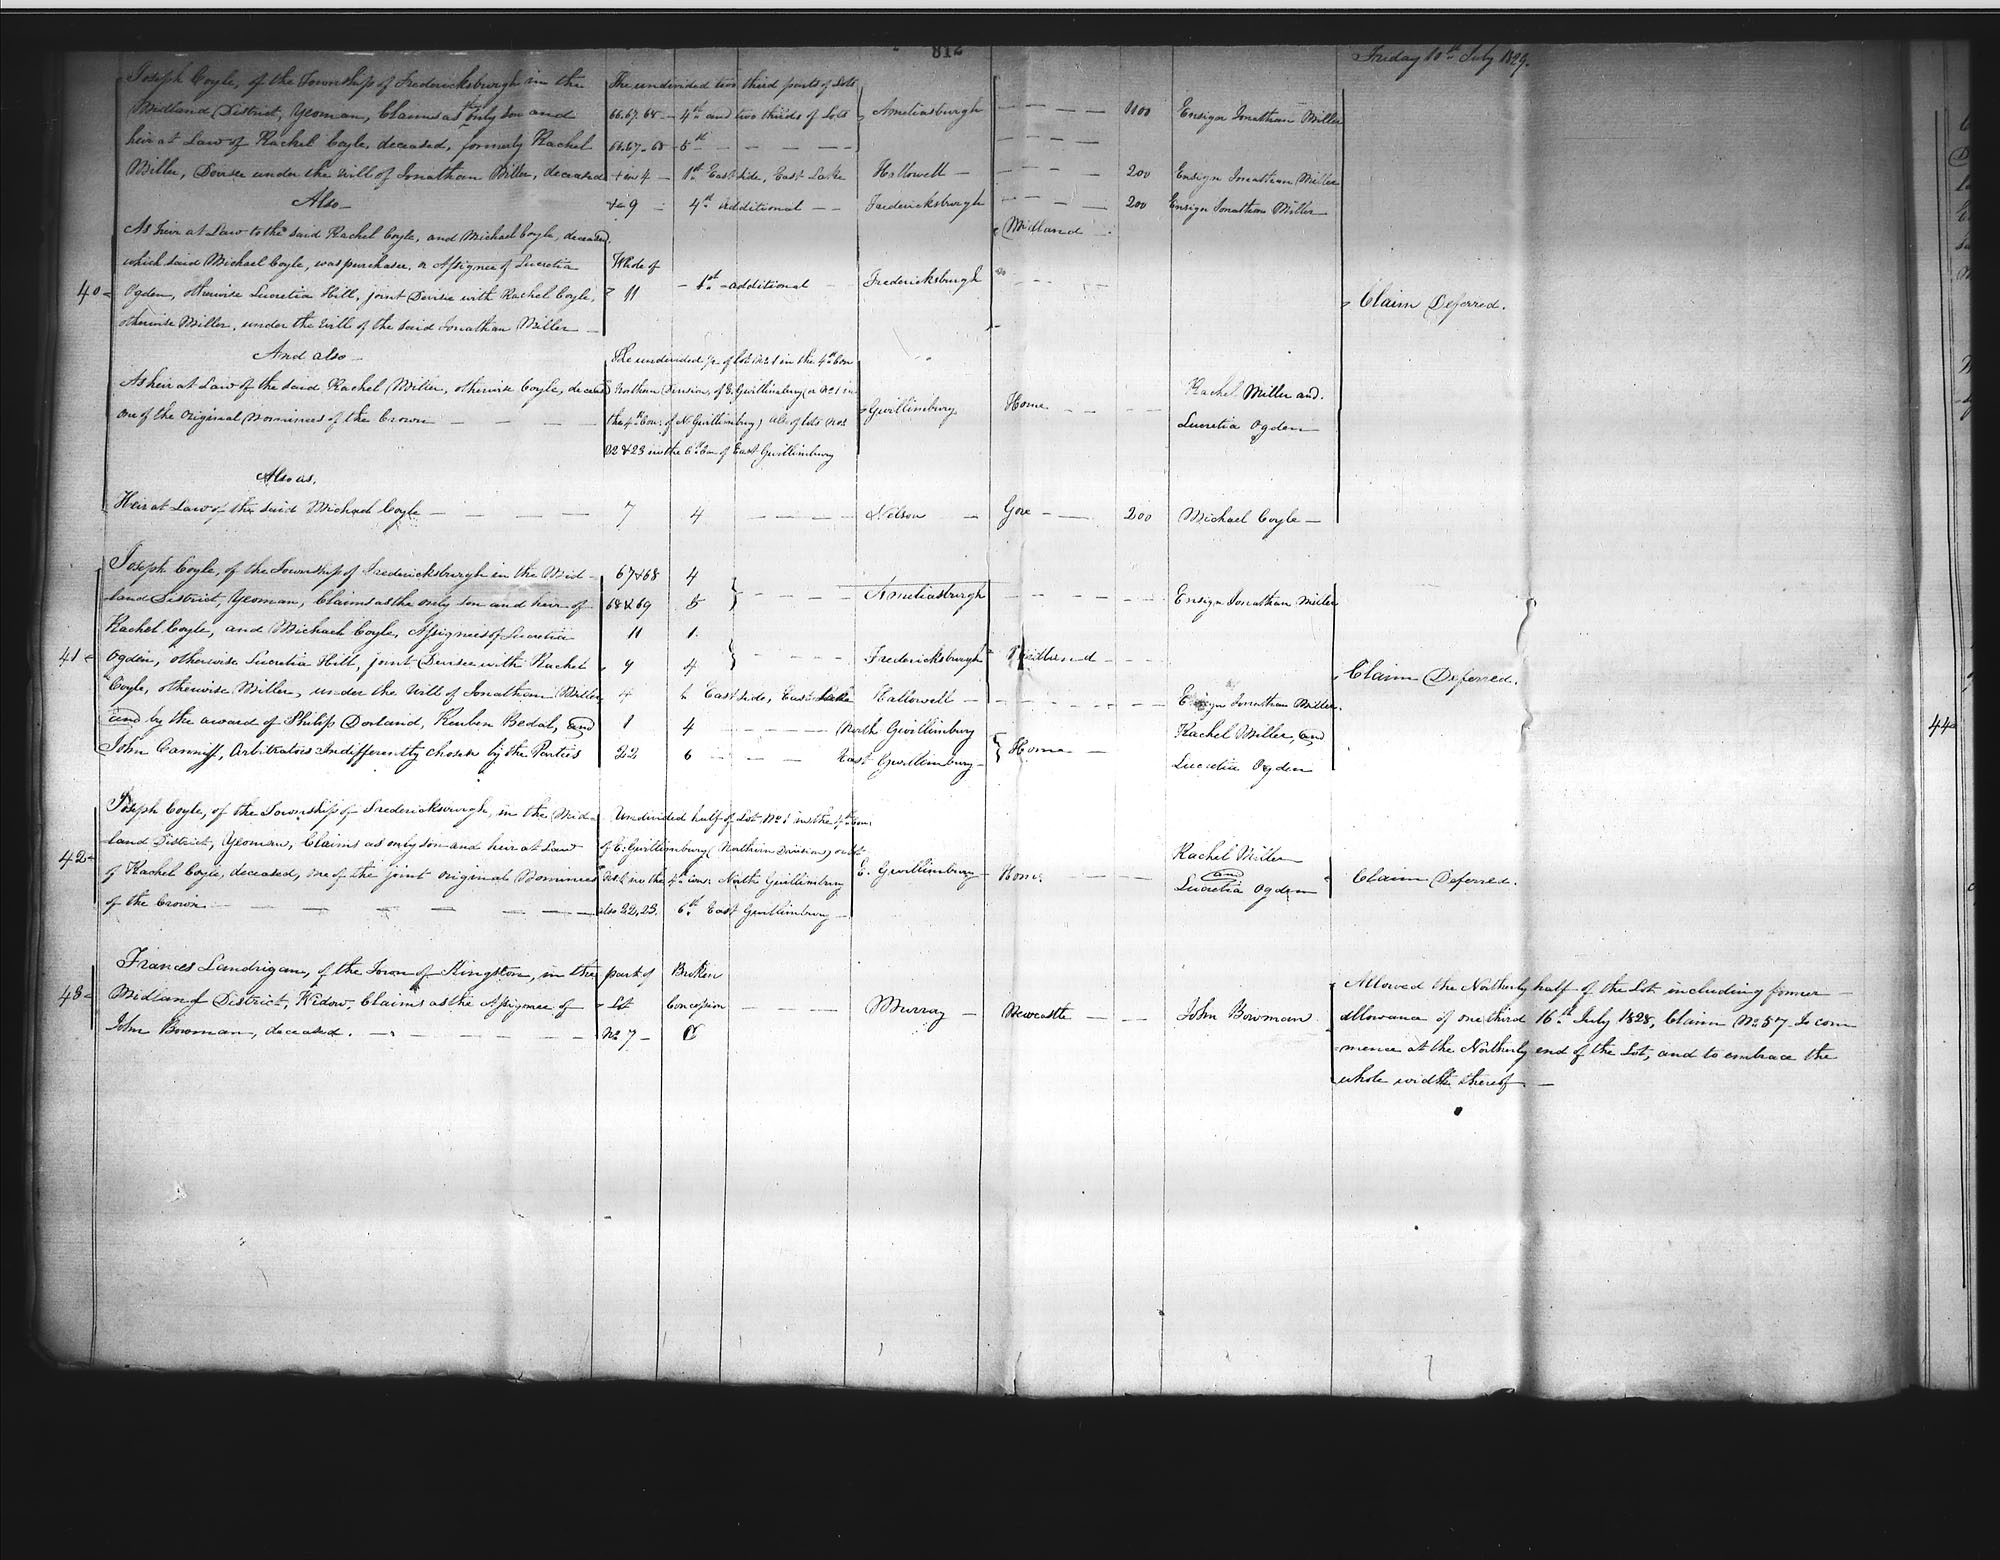 812
Friday 10th July 1829.
Joseph Coyle, of the Township of Fredericksburgh in the
Midland District, Yeoman, Claims as the only son and
heir at Law of Rachel Coyle, deceased, formerly Rachel
Miller, Devisee under the will of Jonathan Miller, deceased
The undivided two third parts of Lots
66.67.68 — 4th and two thirds of Lots
66.67-68 - 5th — — — —
Ameliasburgh — — — — 1100 Ensign Jonathan Miller
4 — 1st East side, East Lake Hallowell — — — — 200 Ensign Jonathan Miller
Also —
9 — 4th additional — — Fredericksburgh — — — — 200 Ensign Jonathan Miller —
Midland
40
As heir at Law to the said Rachel Coyle, and Michael Coyle, deceased,
which said Michael Coyle, was purchaser, or Assignee of Lucretia
Ogden, otherwise Lucretia Hill, joint Devisee with Rachel Coyle,
otherwise Miller, under the will of the said Jonathan Miller —
Whole of
11 — 1st — additional Fredericksburgh — — —
Claim Deferred.
And also —
As heir at Law of the said Rachel Miller, otherwise Coyle, deceased
one of the Original Nominees of the Crown — — — —
The undivided ½ of lot No 1 in the 4th Con
Northern Division, of E. Gwillimbury (or No 1 in
the 4th Con: of N. Gwillimbury) also of lots Nos
22 & 23 in the 6th Con of East Gwillimbury
Gwillimbury Home — — — Rachel Miller and
Lucretia Ogden
Also as,
Heir at Law of the said Michael Coyle — — — — 7 4 — — — — Nelson — Gore — — 200 Michael Coyle —
41
Joseph Coyle, of the Township of Fredericksburgh in the Mid-
land District, Yeoman, Claims as the only son and heir of
Rachel Coyle, and Michael Coyle, Assignees of Lucretia
Ogden, otherwise Lucretia Hill, joint Devisee with Rachel
Coyle, otherwise Miller, under the will of Jonathan Miller
and by the award of Philip Dorland, Reuben Bedal, and
John Canniff, Arbitrators Indifferently chosen by the Parties
67 & 68 4
68 & 69 5 — — — — Ameliasburgh — — — — — — Ensign Jonathan Miller
11 1
9 4 — — — Fredericksburgh Midland — — —
4 East side, East Lake Hallowell — — — — — — Ensign Jonathan Miller.
1 4 — — — — North Gwillimbury
22 6 — — — East Gwillimbury — Home —
Rachel Miller, and
Lucretia Ogden
Claim Deferred.
42
Joseph Coyle, of the Township of Fredericksburgh, in the Mid-
land District, Yeoman, Claims as only son and heir at Law
of Rachel Coyle, deceased, one of the joint original Nominees
of the Crown — — — — — — —
Undivided half of Lot No 1 in the 4th Con:
of E: Gwillimbury (Northern Division)
No 1 in the 4th Con: North Gwillimbury
also 22, 23. 6th East Gwillimbury —
E. Gwillimbury — Home. — — — —
Rachel Miller
and
Lucretia Ogden
Claim Deferred.
43
Frances Landrigan, of the Town of Kingston, in the
Midland District, Widow, Claims as the Assignee of
John Bowman, deceased. — — — — — —
part of
Lot
No 7 —
Broken
Concession
C
— — — — Murray — Newcastle — — John Bowman
Allowed the Northerly half of the Lot including former
allowance of one third 16th July 1828, Claim No 57 To com
mence at the Northerly end of the Lot, and to embrace the
whole width thereof —
44